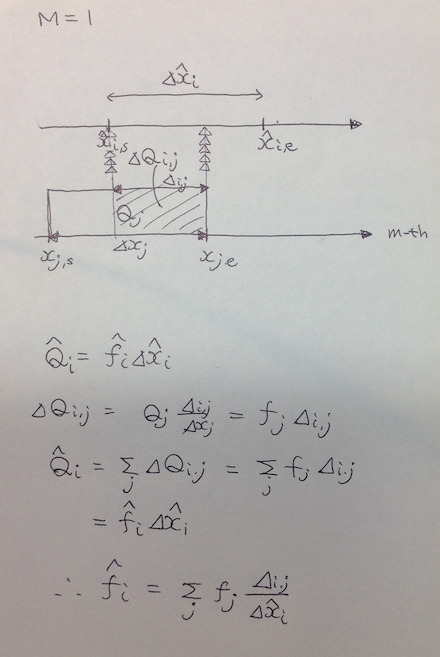 M = 1
Δx̂i
x̂i,s
x̂i,e
ΔQi,j
Δi,j
Qj
m-th
Δxj
xj,s
xj,e
Q̂i = f̂i Δx̂i
ΔQi,j = Qj Δi,j/Δxj = fj Δi,j
Q̂i = Σj ΔQi,j = Σj fj Δi,j
= f̂i Δx̂i
∴ f̂i = Σj fj Δi,j/Δx̂i